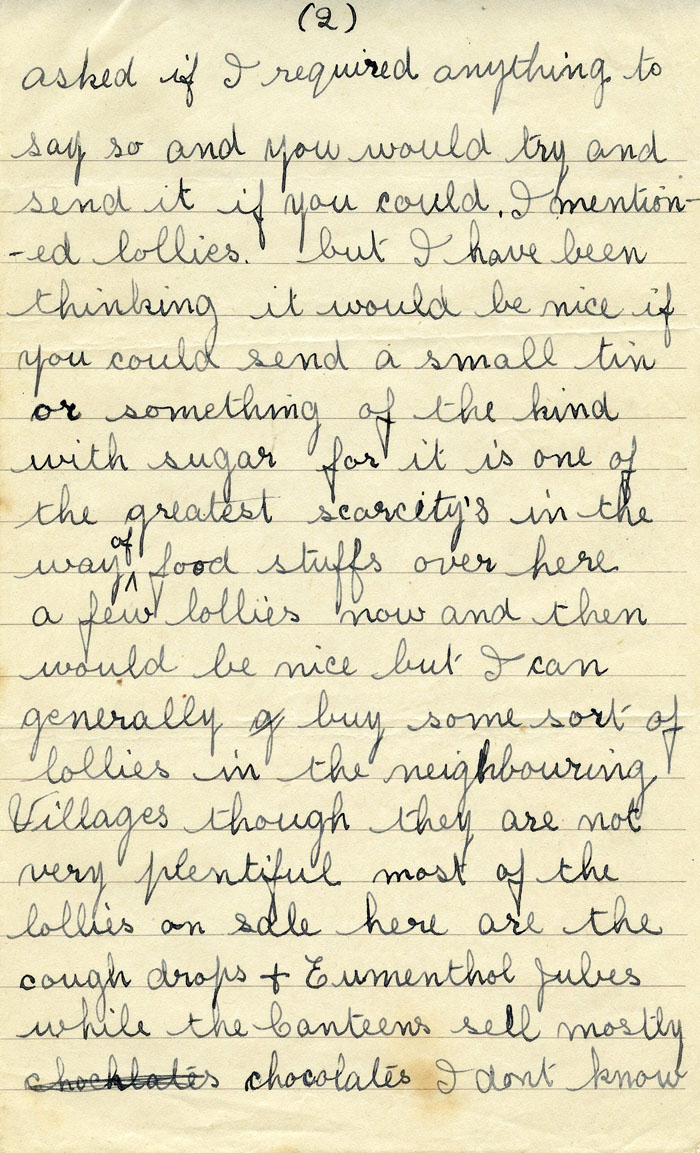 (2)
asked if I required anything to
say so and you would try and
send it if you could. I mention-
-ed lollies. but I have been
thinking it would be nice if
you could send a small tin
or something of the kind
with sugar for it is one of
the greatest scarcity's in the
way of food stuffs over here
a few lollies now and then
would be nice but I can
generally g buy some sort of
lollies in the neighbouring
Villages though they are not
very plentiful most of the
lollies on sale here are the
cough drops + Eumenthol Jubes
while the Canteens sell mostly
chochlates chocolates I dont know